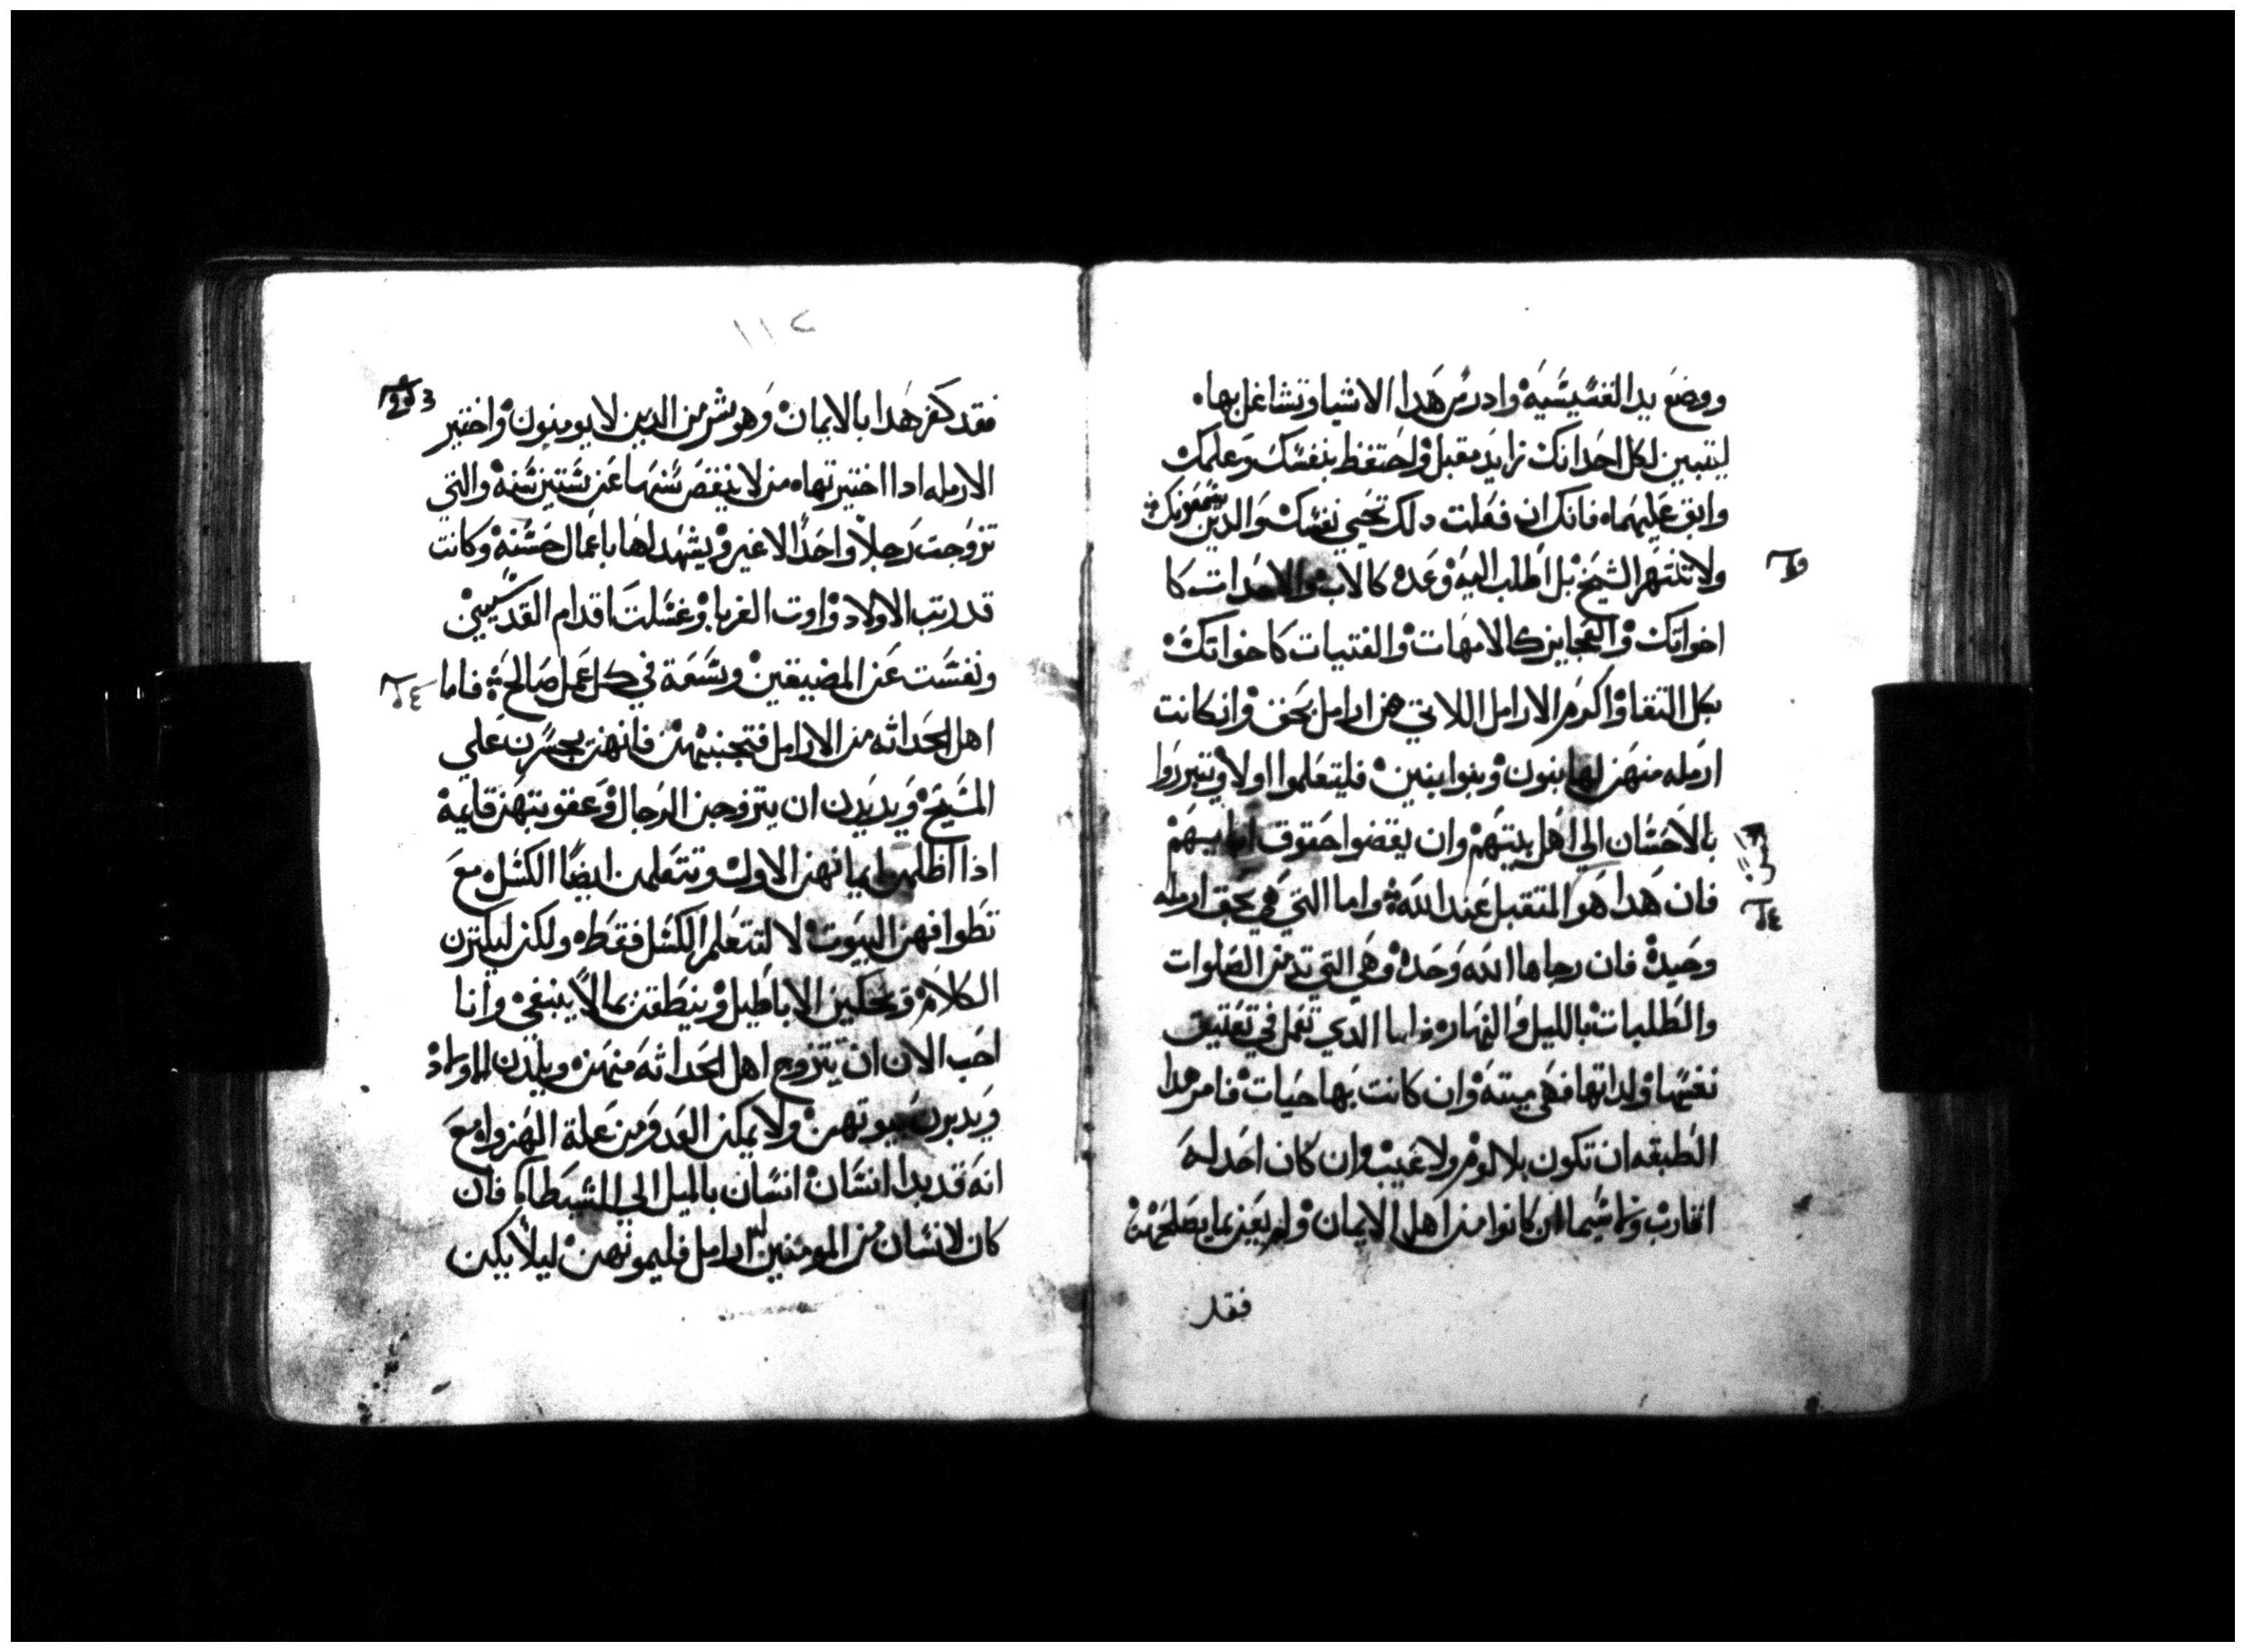 ووضع يد القسيسيه وادرس هدا الاشيا وتشاغل بها
ليتبين لكل احد انك تزايد مقبل واحتفظ بنفسك وعلمك
واتق عليهما فانك ان فعلت دلك تحيي نفسك والدين يسمعونك
ولا تنتهر الشيخ بل اطلب اليه وعده كالاب والاحدات كا
اخواتك والعجايز كالامهات والفتيات كاخواتك
بكل التقا واكرم الارامل اللاتي هن ارامل بحق وان كانت
ارمله منهن لها بنون وبنوا بنين فليتعلموا اولا ويتبرروا
بالاحسان الي اهل بيتهم وان يقضوا حقوق ابايهم
فان هدا هو المتقبل عند الله واما التي هي بحق ارمله
وحيدة فان رجاها الله وحده وهي التي تدمن الصلوات
والطلبات بالليل والنهار واما الدي تعمل في تعتيق
نفسها ولداتها فهي ميته وان كانت بها حيات فامر هدا
الطبقه ان تكون بلا لوم ولا عيب وان كان احد له
اقارب ولا سيما ان كانوا من اهل الايمان ولم يعن بما يصلحهم
فقد
١١٢
فقد كفر هدا بالايمان وهو شر من الدين لا يومنون واختير
الارمله ادا اختيرتها من لا ينقص سنها عن ستين سنه والتي
تزوجت رجلا واحدا لا غير ويشهد لها باعمال حسنه وكانت
قد ربت الاولاد واوت الغربا وغسلت اقدام القديسين
ونفست عن المضيقين وسعة في كل عمل صالح فاما
اهل الحداثه من الارامل فتجنبهن فانهن يجسرن علي
المسيح ويريدن ان يتزوجن الرجال وعقوبتهن قايمة
اذا اظلمن ايمانهن الاول ويتعلمن ايضا الكسل مع
تطوافهن البيوت لا لتتعلم الكسل فقط ولكن ليكترن
الكلام ويحكين الاباطيل وينطقن بما لا ينبغي وانا
احب الان ان يتزوج اهل الحداثه منهن ويلدن الاولاد
ويدبرن بيوتهن ولا يمكن العدو من علة الهزواه مع
انه قد بدا انسان انسان بالميل الي الشيطان فان
كان لانسان من المومنين ارامل فليمونهن ليلا يكن